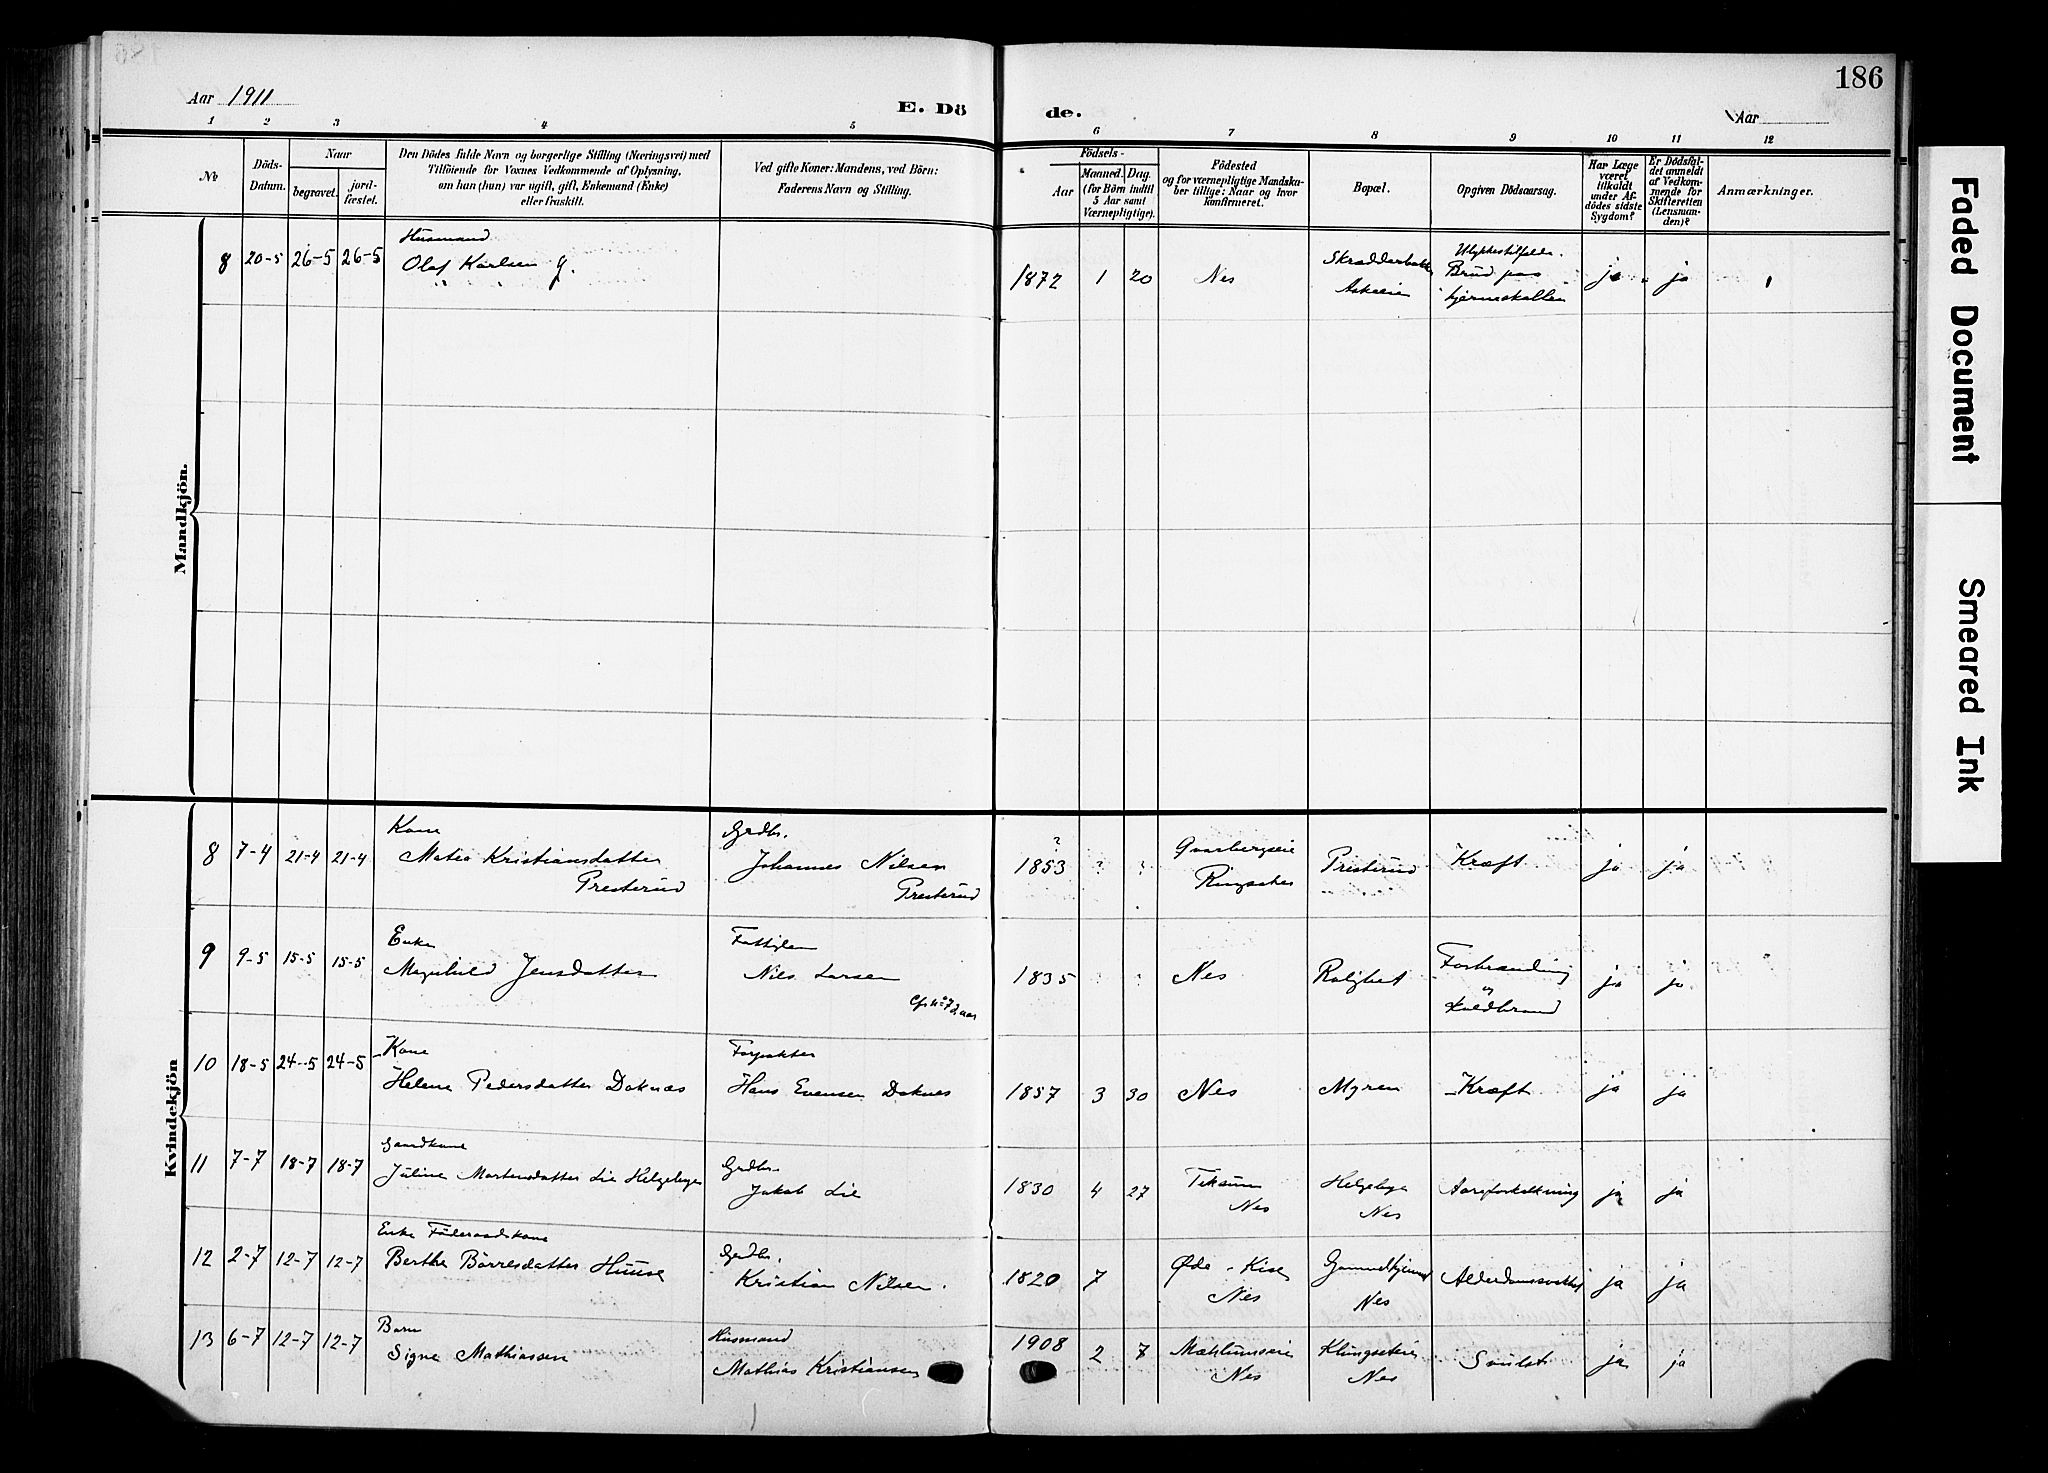 186
Aar 1911
E. Dö
de.
Aar
1 2 3 4 5 6 7 8 9 10 11 12
No
Döds-
Datum.
Naar
begravet.
jord-
fæstet.
Den Dödes fulde Navn og borgerlige Stilling (Næringsvei) med
Tilföiende for Voxnes Vedkommende af Oplysning,
om han (hun) var ugift, gift, Enkemand (Enke)
eller fraskilt.
Ved gifte Koner: Mandens, ved Börn:
Faderens Navn og Stilling.
Födsels-
Aar
Maaned. Dag.
(for Börn indtil
5 Aar samt
Værnepligtige).
Födested
og for værnepligtige Mandska-
ber tillige: Naar og hvor
konfirmeret.
Bopæl.
Opgiven Dödsaarsag.
Har Læge
været
tilkaldt
under Af-
dödes sidste
Sygdom?
Er Dödsfal-
det anmeldt
af Vedkom-
mende for
Skifteretten
(Lensman-
den)?
Anmærkninger.
Mandkjön.
Husmand
8 20-5 26-5 26-5 Olaf Karlsen g. 1872 1 20 Nes Askeeie Ulykkestilfelde. Brud paa hjerneskallen ja ja
Kvindekjön
Kone Grdbr.
8 7-4 21-4 21-4 Matea Kristiansdatter Johannes Nilsen 1853 ? ? ? Ringsaker Presterud Kræft ja ja
Presterud Presterud
Enke
9 9-5 15-5 15-5 Magnhild Jensdatter Nils Larsen 1835 Nes Rolighet Forbrænding og Koldbrand ja ja
Kone Forpakter
10 18-5 24-5 24-5 Helene Pedersdatter Doknæs Hans Evensen Doknes 1857 3 30 Nes Myren Kræft ja ja
Gaardkone Grdbr.
11 7-7 18-7 18-7 Juline Mortensdatter Lie Helgeby Jakob Lie 1830 4 27 Nes Nes Aareforkalkning ja ja
Enke Föderaadskone Grdbr.
12 2-7 12-7 12-7 Berthe Börresdatter Huuse Kristian Nilsen. 1820 7 Øde-Kise Nes Nes ja ja
Barn Husmand
13 6-7 12-7 12-7 Signe Mathiassen Mathias Kristiansen 1908 2 7 Mæhlumseie Nes Klungseteie Nes Svulst ja ja
Faded Document
Smeared Ink